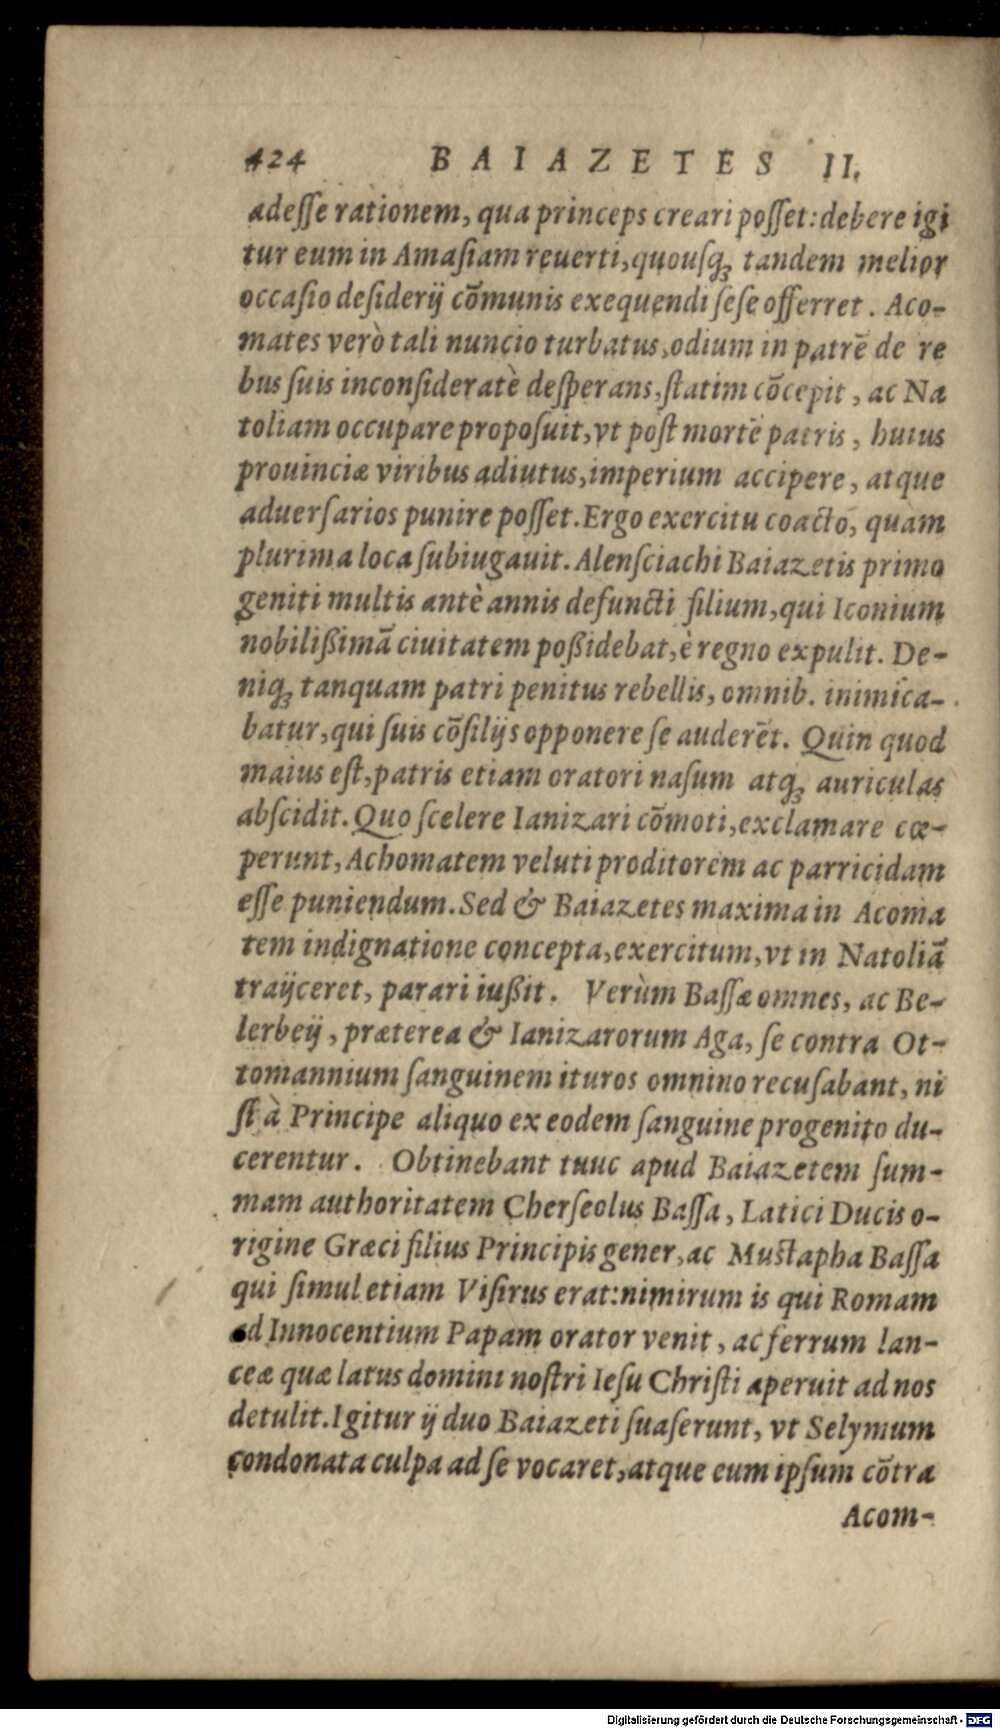 424 BAIAZETES II.
adeſſe rationem, qua princeps creari poſſet: debere igi
tur eum in Amaſiam reuerti, quouſq; tandem melior
occaſio deſiderij cõmunis exequendi ſeſe offerret. Aco-
mates verò tali nuncio turbatus, odium in patrẽ de re
bus ſuis inconſideratè deſperans, ſtatim cõcepit, ac Na
toliam occupare propoſuit, vt poſt mortẽ patris, huius
prouinciæ viribus adiutus, imperium accipere, atque
aduerſarios punire poſſet. Ergo exercitu coacto, quam
plurima loca ſubiugauit. Alenſciachi Baiazetis primo
geniti multis antè annis defuncti filium, qui Iconium
nobilißimã ciuitatem poßidebat, è regno expulit. De-
niq; tanquam patri penitus rebellis, omnib. inimica-
batur, qui ſuis cõſilijs opponere ſe auderẽt. Quin quod
maius eſt, patris etiam oratori naſum atq; auriculas
abſcidit. Quo ſcelere Ianizari cõmoti, exclamare cœ-
perunt, Achomatem veluti proditorem ac parricidam
eſſe puniendum. Sed & Baiazetes maxima in Acoma
tem indignatione concepta, exercitum, vt in Natoliã
traijceret, parari iußit. Verùm Baſſæ omnes, ac Be-
lerbeij, præterea & Ianizarorum Aga, ſe contra Ot-
tomannium ſanguinem ituros omnino recuſabant, ni
ſi à Principe aliquo ex eodem ſanguine progenito du-
cerentur. Obtinebant tuuc apud Baiazetem ſum-
mam authoritatem Cherſeolus Baſſa, Latici Ducis o-
rigine Græci filius Principis gener, ac Muſtapha Baſſa
qui ſimul etiam Viſirus erat: nimirum is qui Romam
ad Innocentium Papam orator venit, ac ferrum lan-
ceæ quæ latus domini noſtri Ieſu Chriſti aperuit ad nos
detulit. Igitur ij duo Baiazeti ſuaſerunt, vt Selymum
condonata culpa ad ſe vocaret, atque eum ipſum cõtra
Acom-
Digitalisierung gefördert durch die Deutsche Forschungsgemeinschaft - DFG